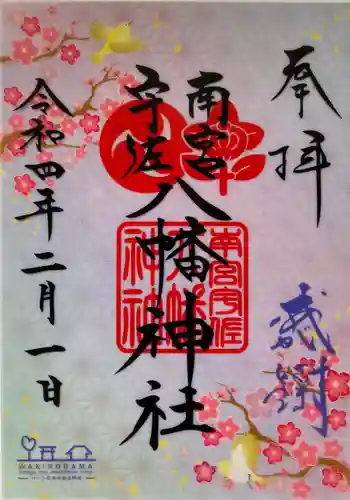 奉拝
南宮
宇佐
八幡神社
感謝
令和四年二月一日
南宮宇佐
八幡
神社
WAKINOHAMA